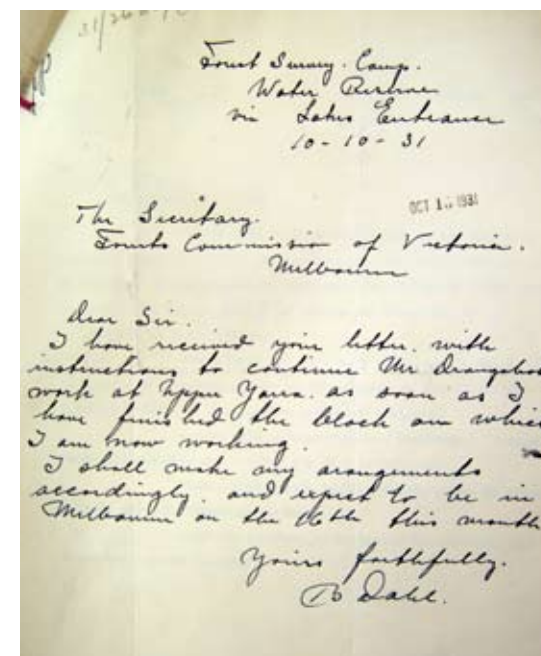 31/26
Forest Survey. Camp.
Water Reserve
via Lakes Entrance
10-10-31
OCT 1 1931
The Secretary.
Forests Commission of Victoria.
Melbourne
Dear Sir.
I have received your letter. with
instructions to continue Mr
work at Upper Yarra. as soon as I
have finished the block on which
I am now working.
I shall make my arangements
accordingly. and expect to be in
Melbourne on the 16th this month
Yours faithfully.
B Dahl.